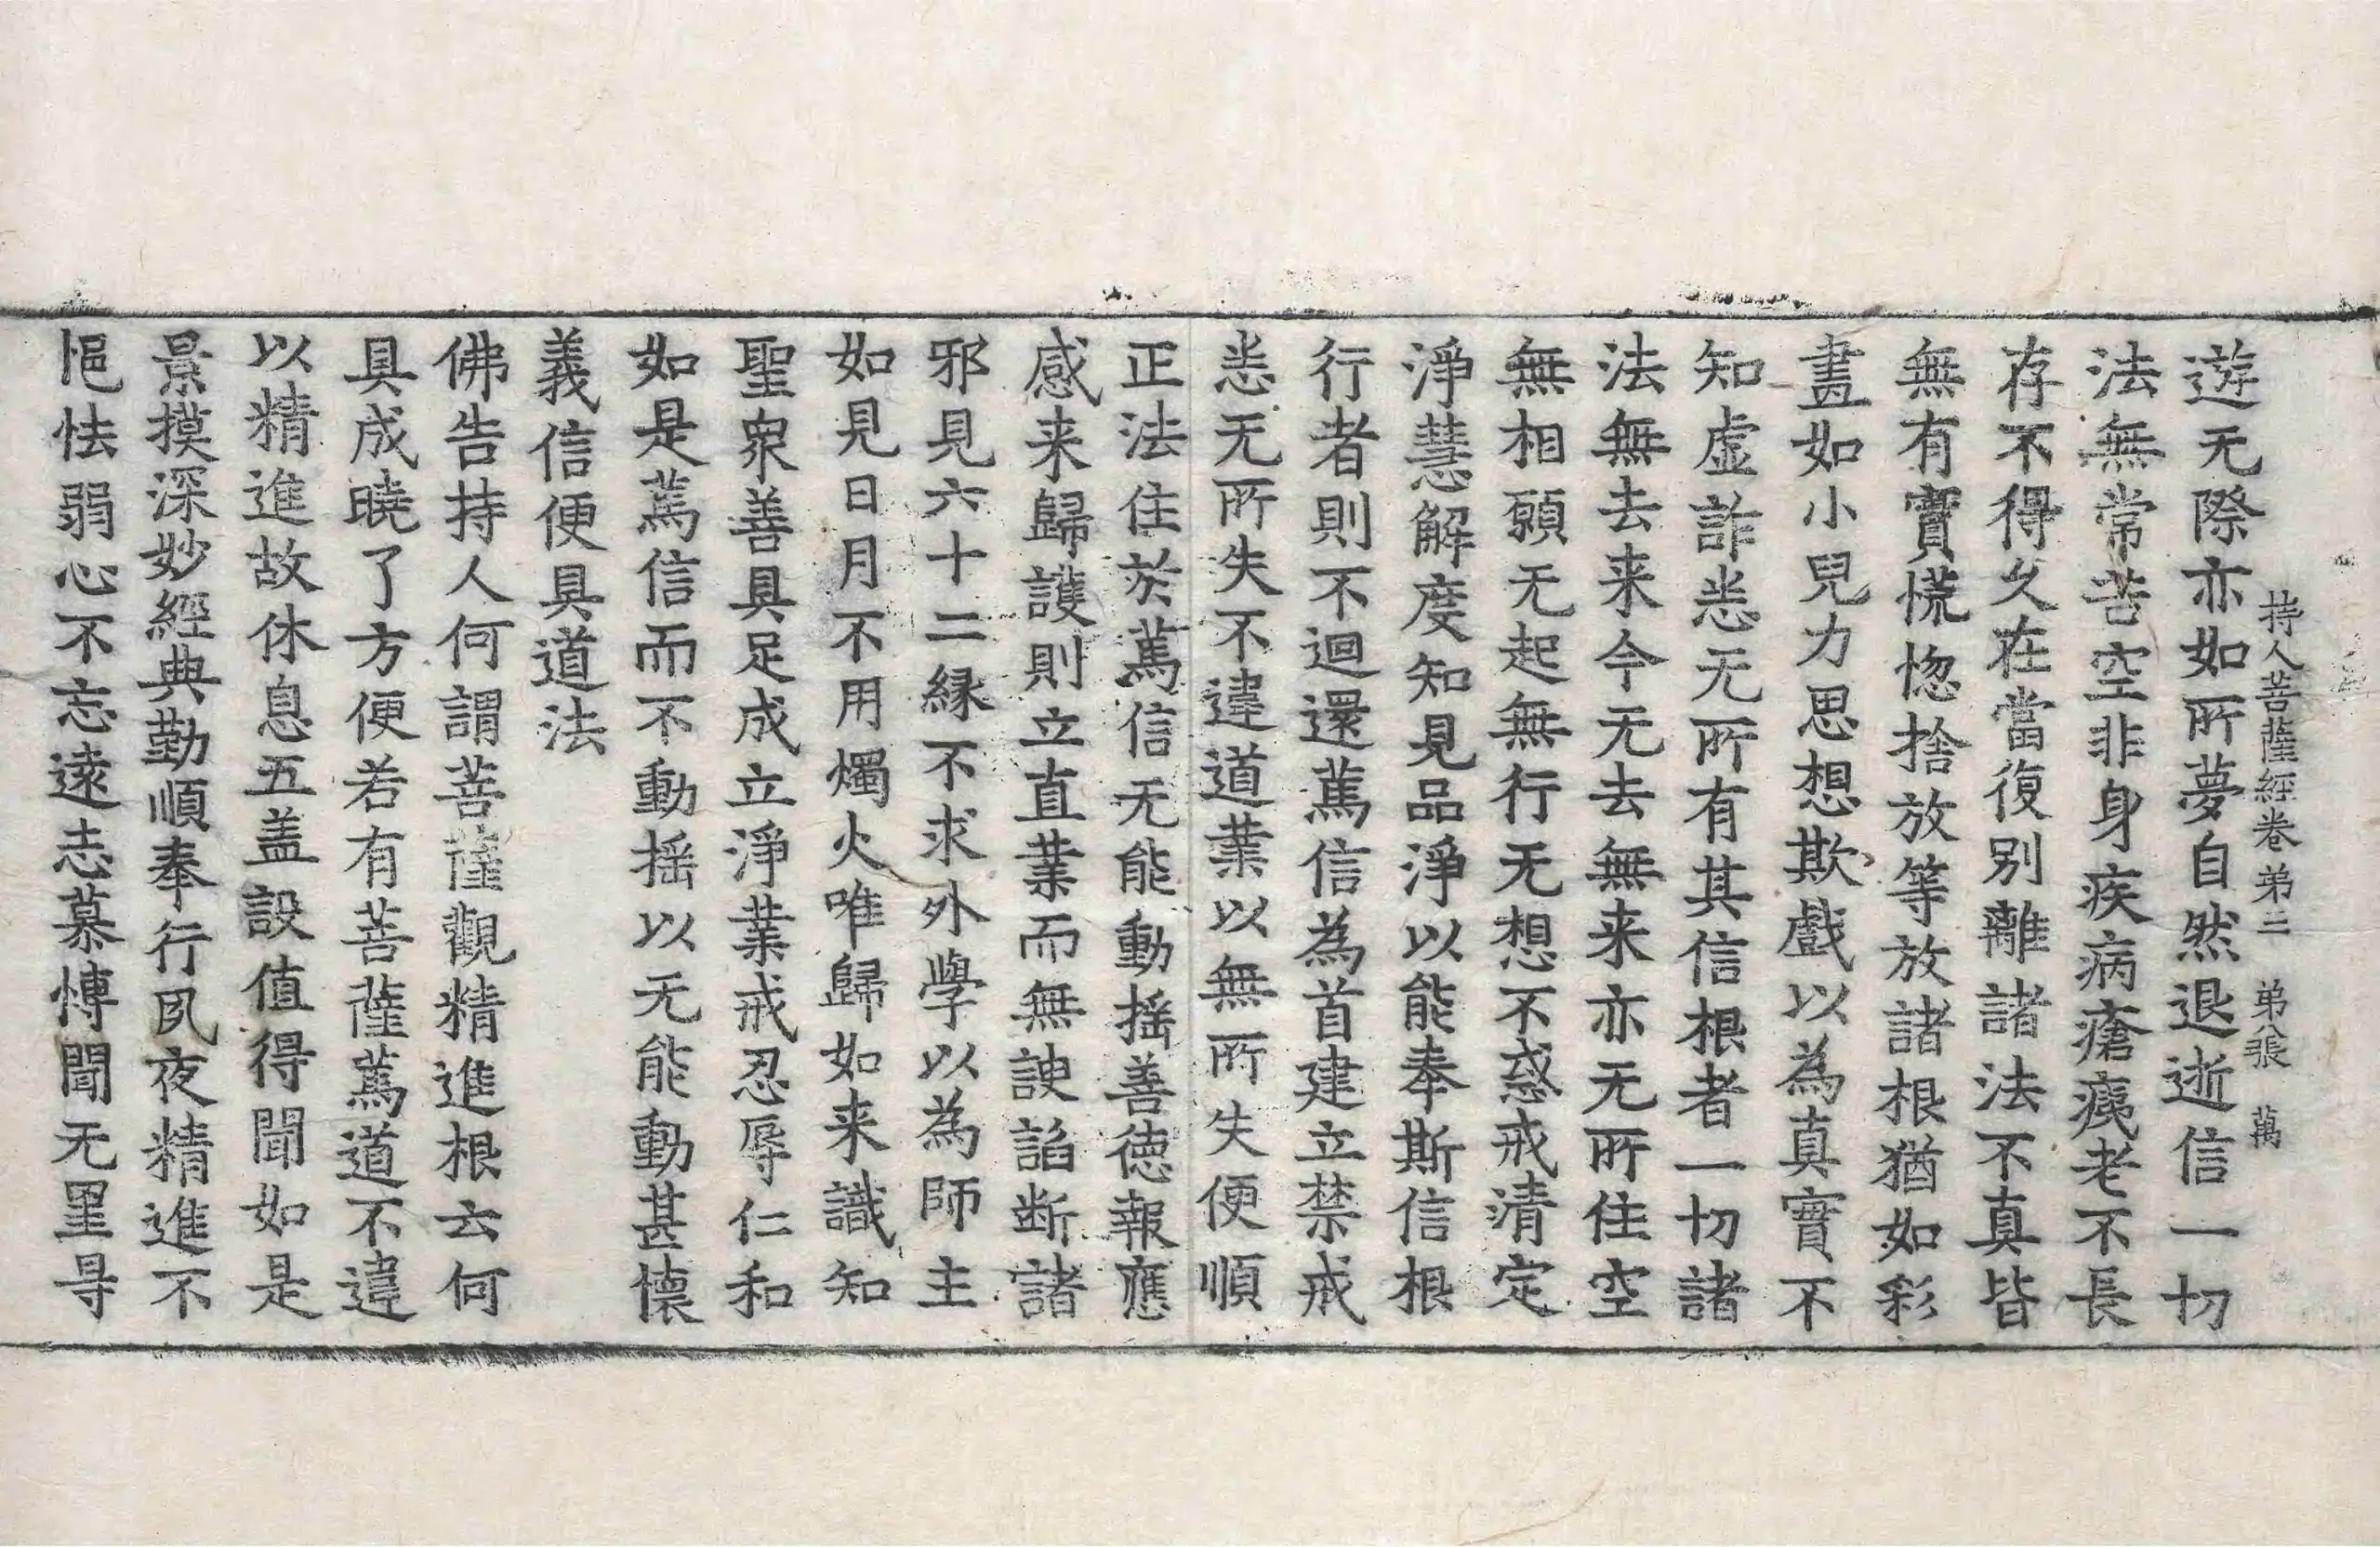 持人菩薩經卷第三 第八張 萬
遊无際亦如所夢自然退逝信一切
法無常苦空非身疾病瘡痍老不長
存不得久在當復別離諸法不真皆
無有實慌惚捨放等放諸根猶如彩
畫如小兒力思想欺戲以為真實不
知虛詐悉无所有其信根者一切諸
法無去来今无去無来亦无所住空
無相願无起無行无想不惑戒清定
淨慧解度知見品淨以能奉斯信根
行者則不迴還篤信為首建立禁戒
悉无所失不違道業以無所失便順
正法住於篤信无能動搖善德報應
感来歸護則立直業而無諛諂断諸
邪見六十二縁不求外學以為師主
如見日月不用燭火唯歸如来識知
聖衆善具足成立淨業戒忍辱仁和
如是篤信而不動搖以无能動甚懷
義信便具道法
佛告持人何謂菩薩觀精進根云何
具成曉了方便若有菩薩篤道不違
以精進故休息五盖設值得聞如是
景摸深妙經典勤順奉行夙夜精進不
悒怯弱心不忘遠志慕愽聞无罣㝵